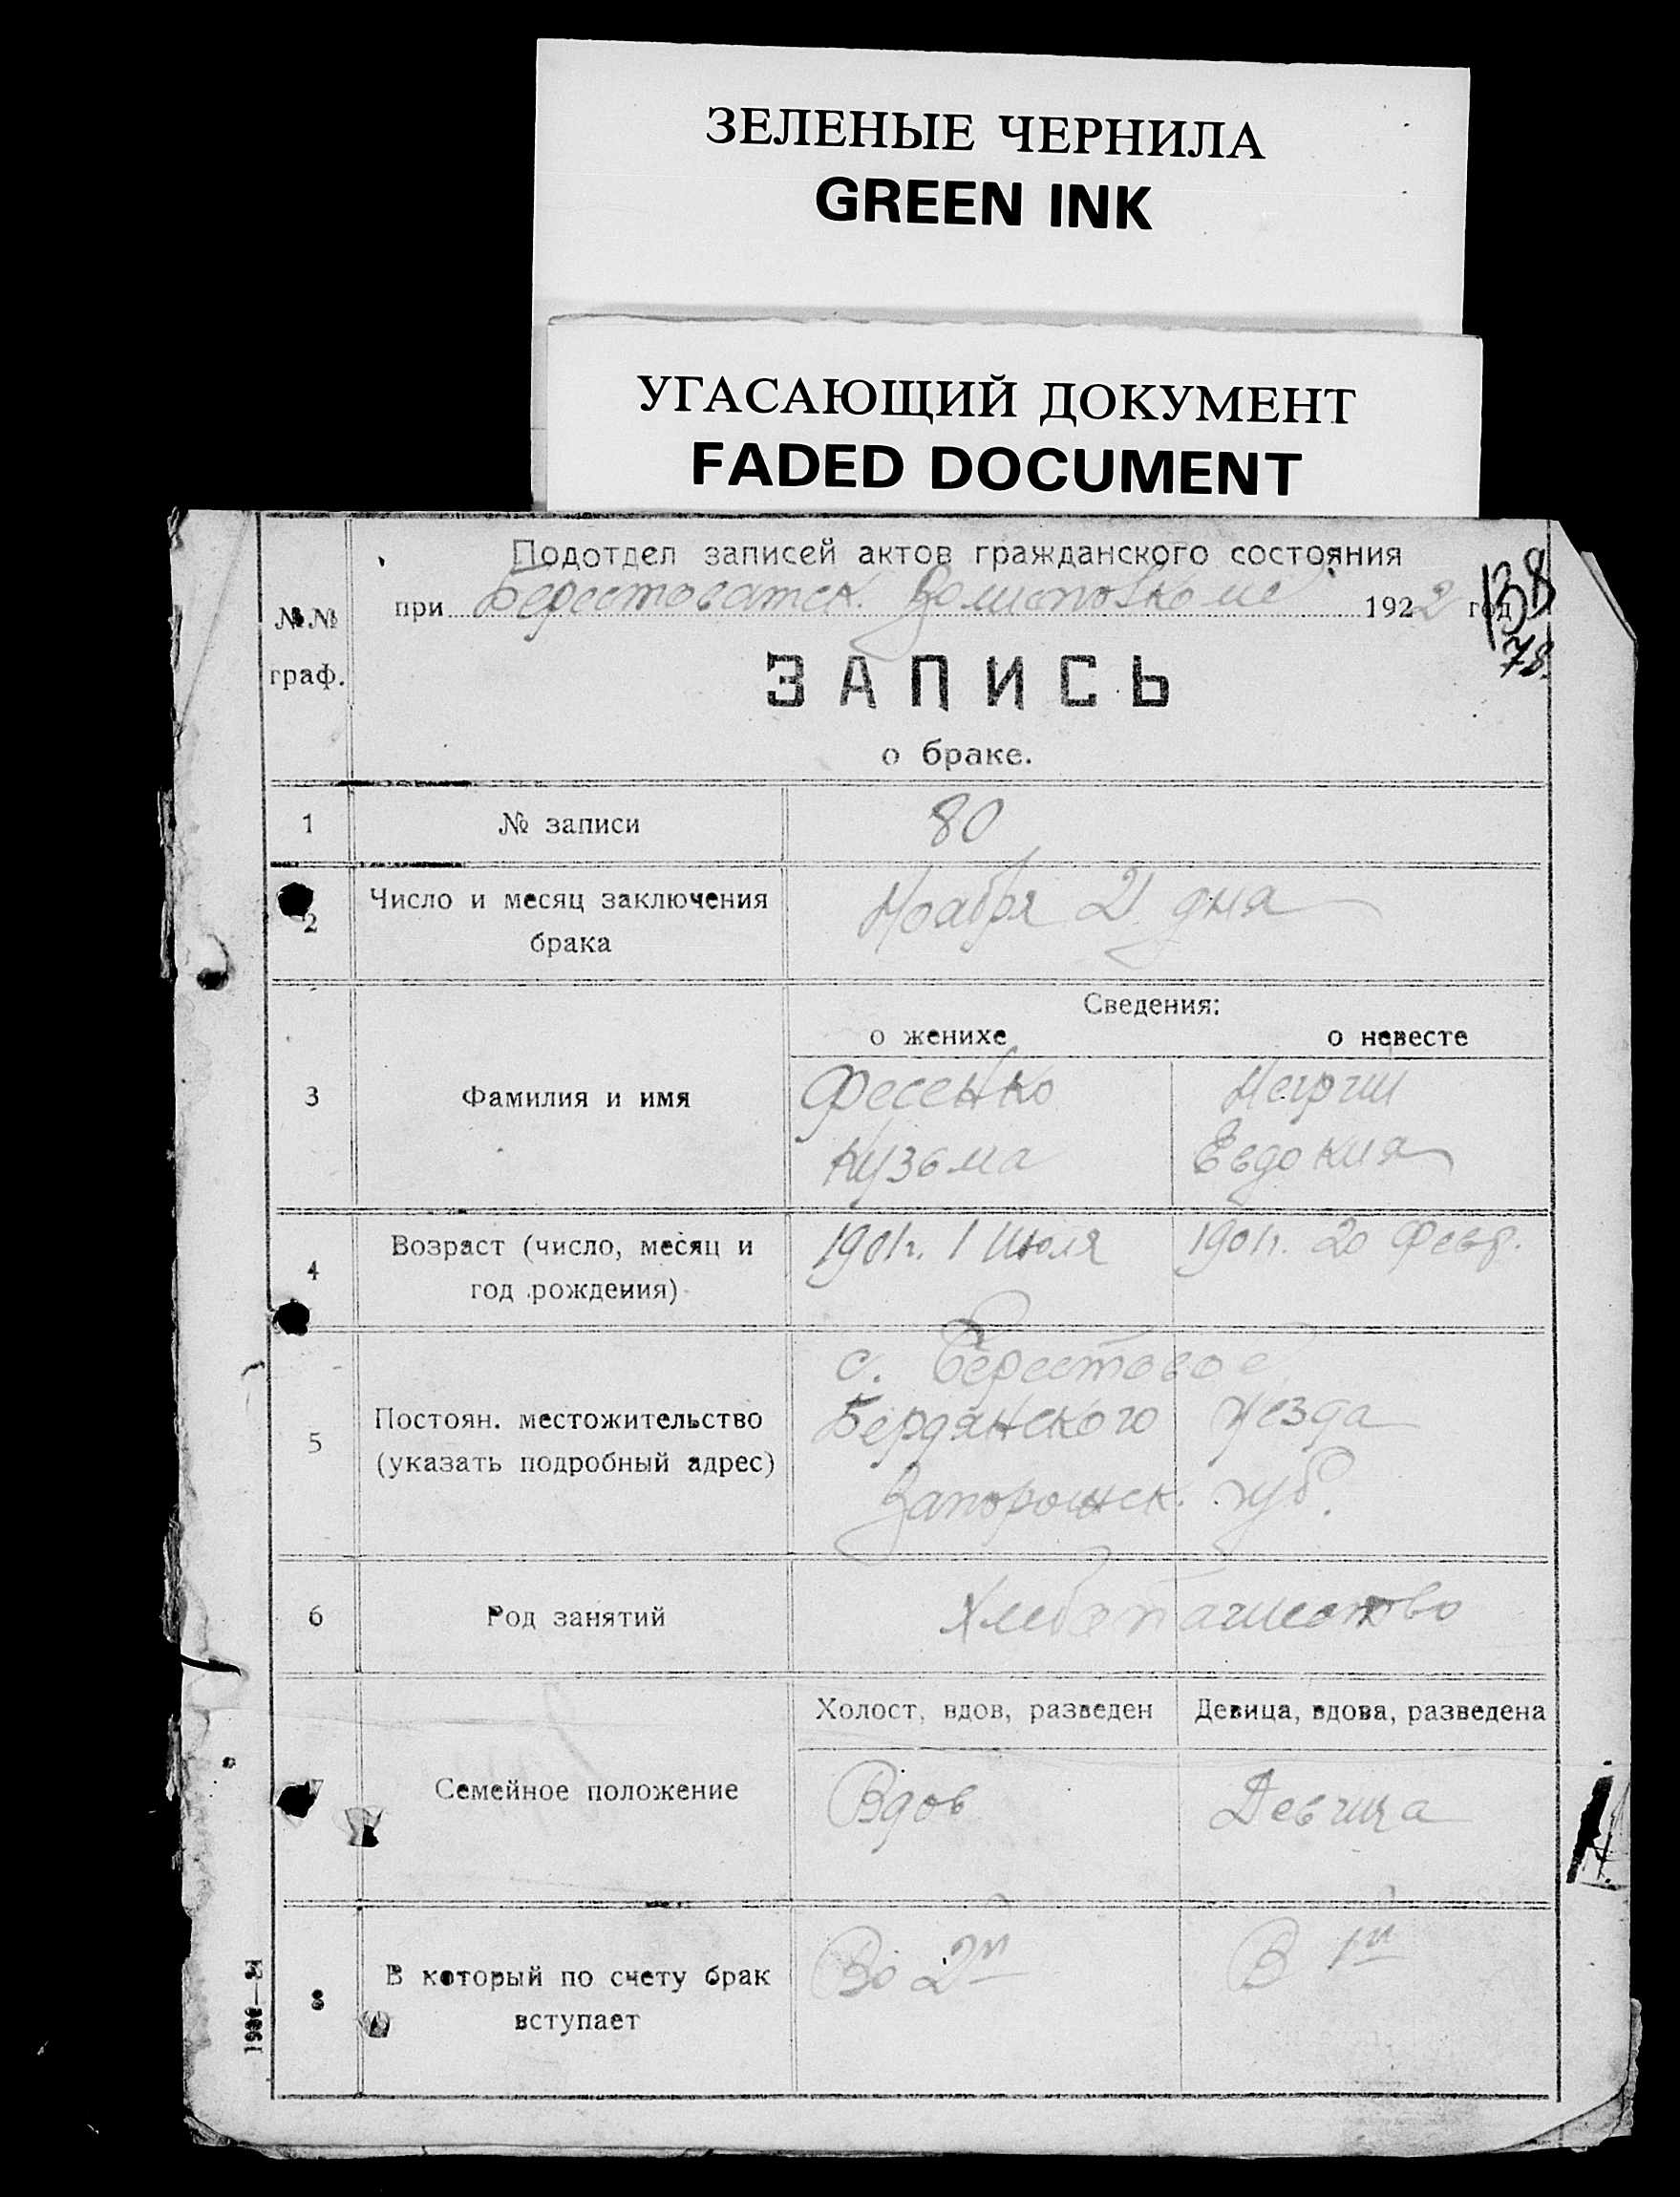 ЗЕЛЕНЫЕ ЧЕРНИЛА
GREEN INK
УГАСАЮЩИЙ ДОКУМЕНТ
FADED DOCUMENT
Подотдел записей актов гражданского состояния
при Берестоватск. 1922 год
138
78
№.№
граф.
ЗАПИСЬ
о браке.
1 № записи 80
2 Число и месяц заключения
брака
Ноября 21 дня
Сведения:
о женихе о невесте
3 Фамилия и имя
Фесенко
Кузьма Евдокия
4 Возраст (число, месяц и
год рождения)
1901г. 1 Июля 1901г. 20 Февр.
5 Постоян. местожительство
(указать подробный адрес)
с. Берестовое
Бердянского уезда
Запорожск. губ.
6 Род занятий Хлебопашество
Холост, вдов, разведен Девица, вдова, разведена
7 Семейное положение Вдов Девица
8 В который по счету брак
вступает
Во 2й В 1й